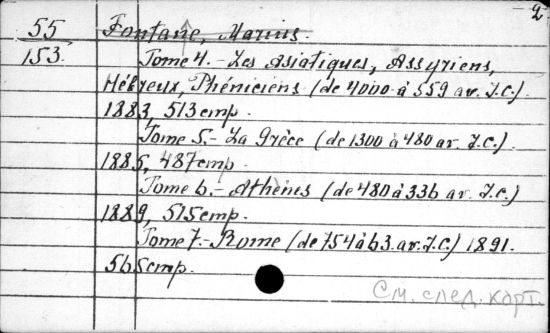 -2
55 Fontane, Marius
153. Tome 4. - Les Asiatiques, Assyriens,
Hébreux, Phéniciens (de 4000 à 559 av. J.C.)
1883, 513 стр.
Tome 5. - La Grèce (de 1300 à 480 av. J.C.)
1885, 487 стр.
Tome 6. - Athènes (de 480 à 336 av. J.C.)
1889, 515 стр.
Tome 7. - Rome (de 754 à 63. av. J.C.) 1891.
565 стр.
См. след. карт.